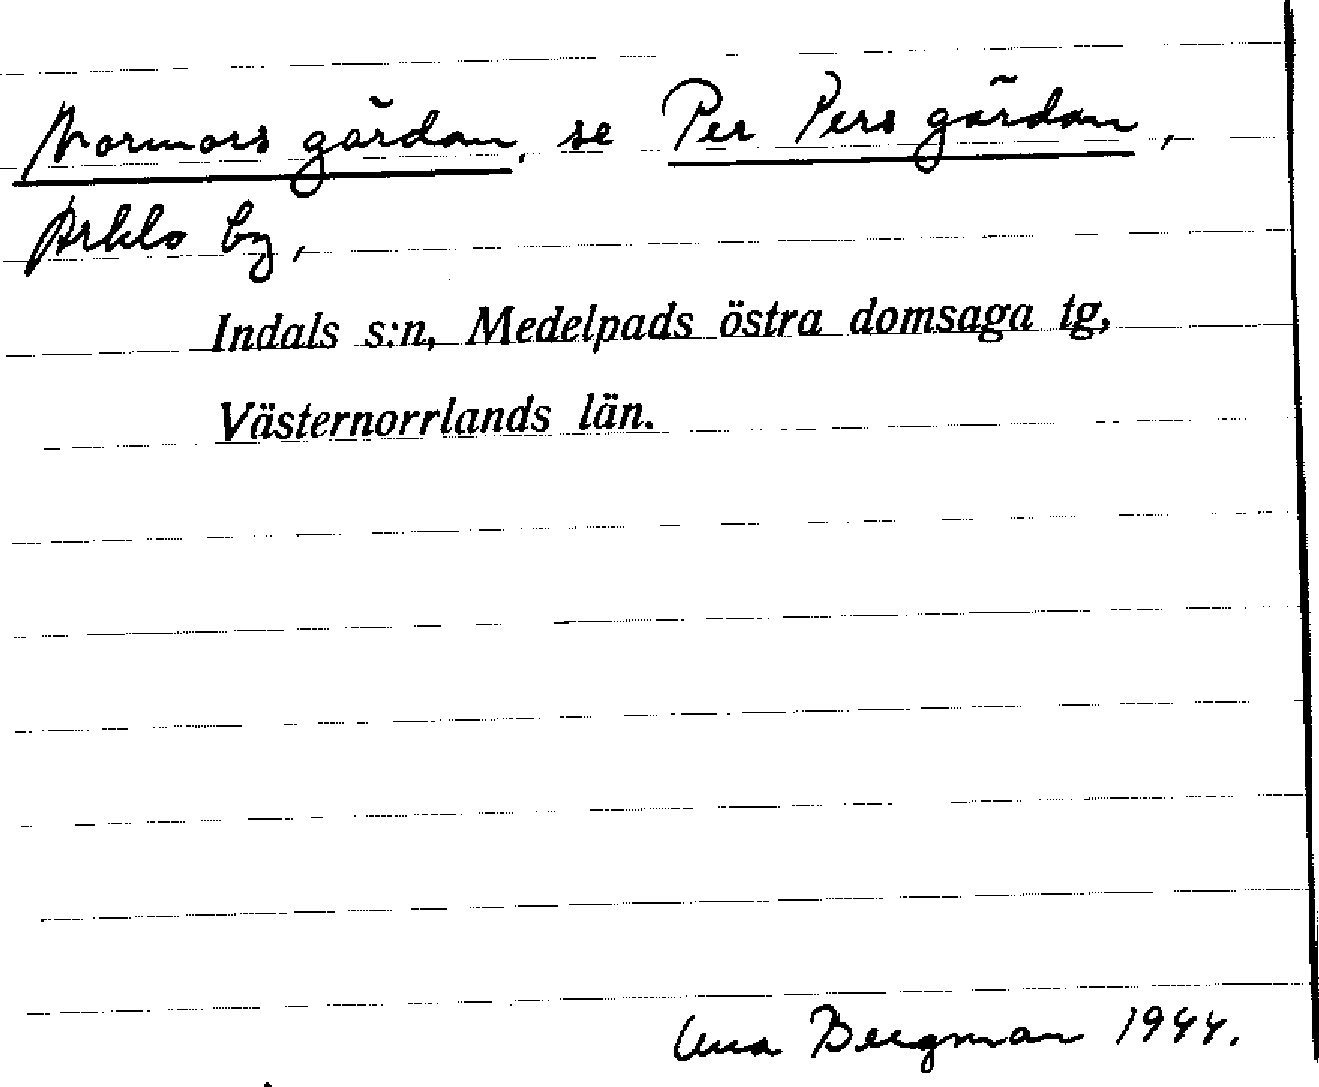 Mormors gårdan, se Per Pers gårdan,
Arklo by,
Indals s:n, Medelpads östra domsaga tg,
Västernorrlands län.
Bergman 1944.